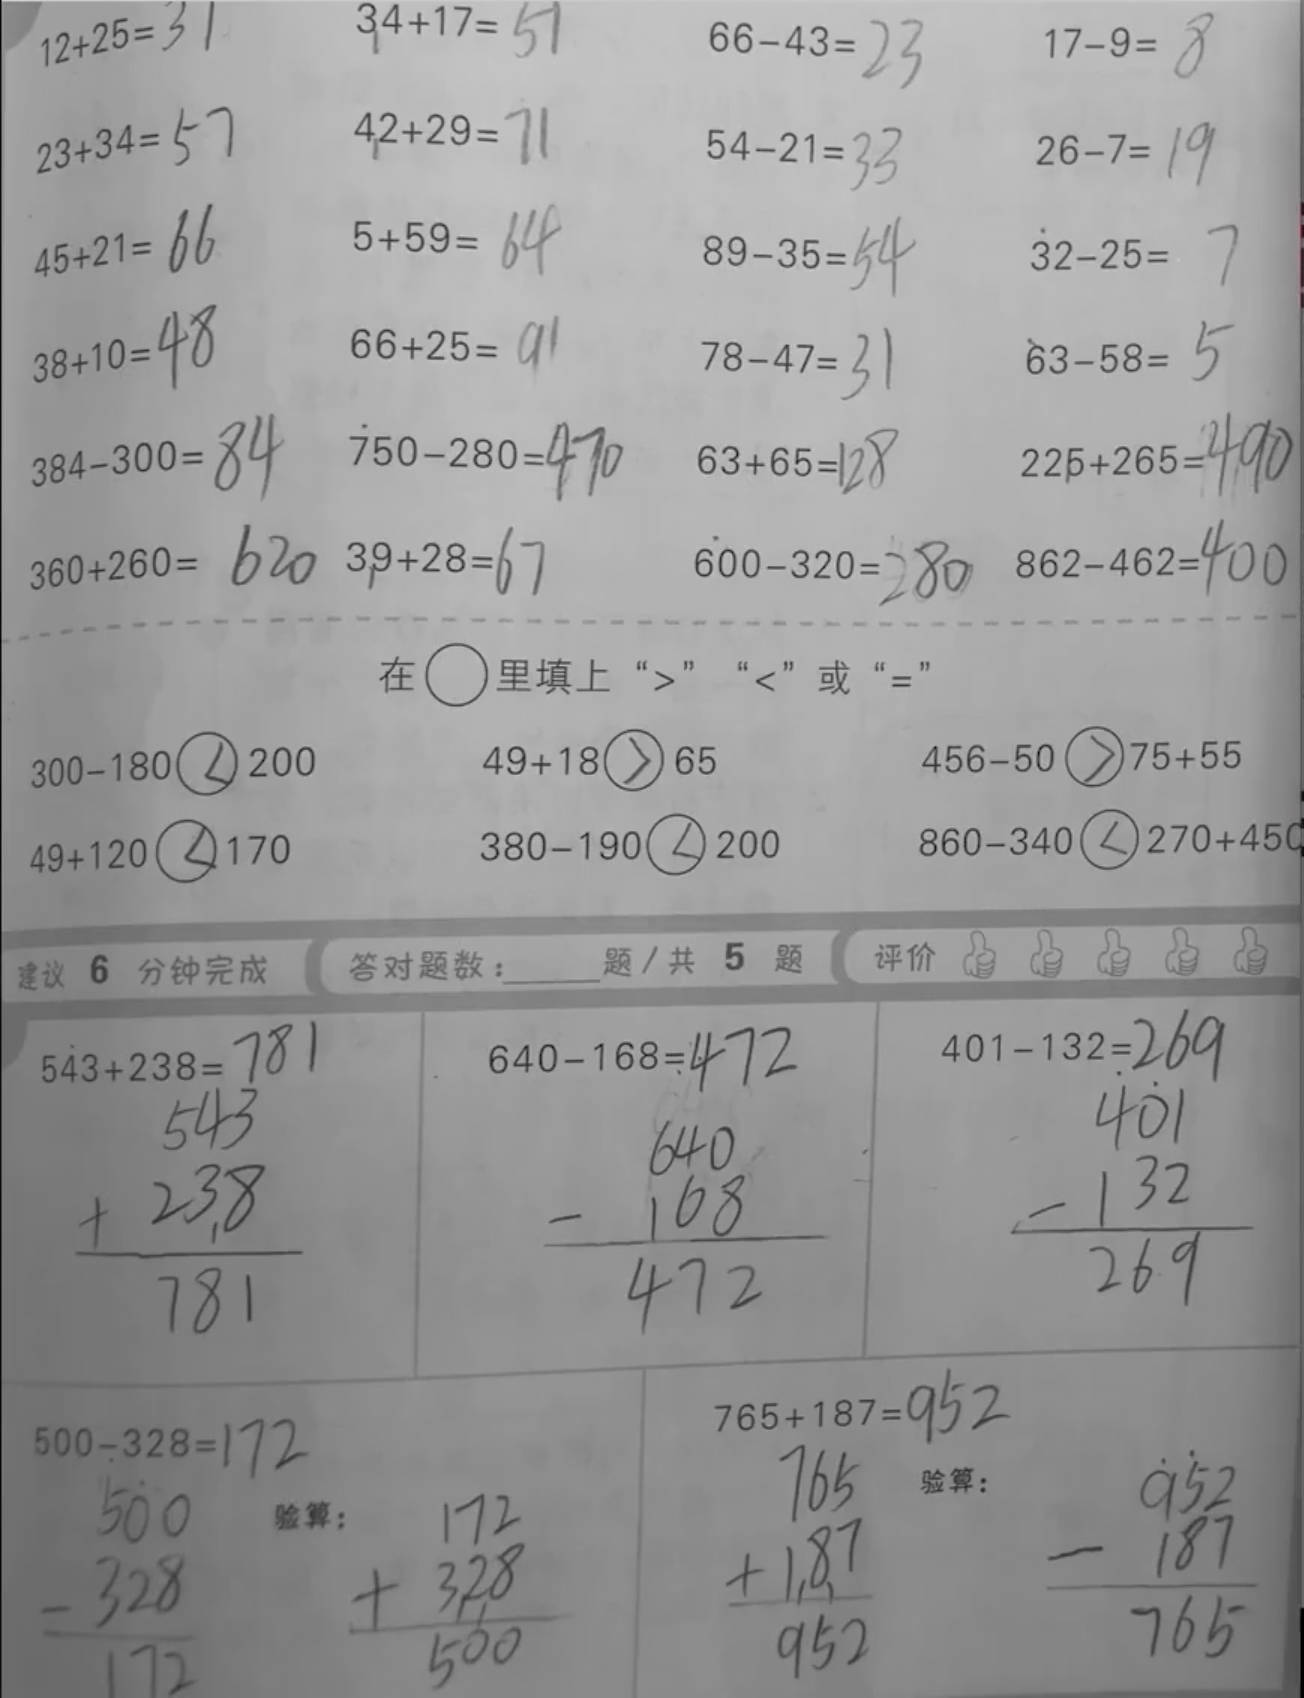 12+25=31 34+17=51 66-43=23 17-9=8
23+34=57 42+29=71 54-21=33 26-7=19
45+21=66 5+59=64 89-35=54 32-25=7
38+10=48 66+25=91 78-47=31 63-58=5
384-300=84 750-280=470 63+65=128 225+265=490
360+260=620 39+28=67 600-320=280 862-462=400
在○里填上“>”“<”或“=”
300-180<200 49+18>65 456-50>75+55
49+120<170 380-190<200 860-340<270+450
建议 6 分钟完成 答对题数:____题/共 5 题 评价
543+238=781 640-168=472 401-132=269
543 640 401
+ 238 - 168 - 132
781 472 269
500-328=172 765+187=952
500 验算: 172 765 验算: 952
- 328 + 328 + 187 - 187
172 500 952 765